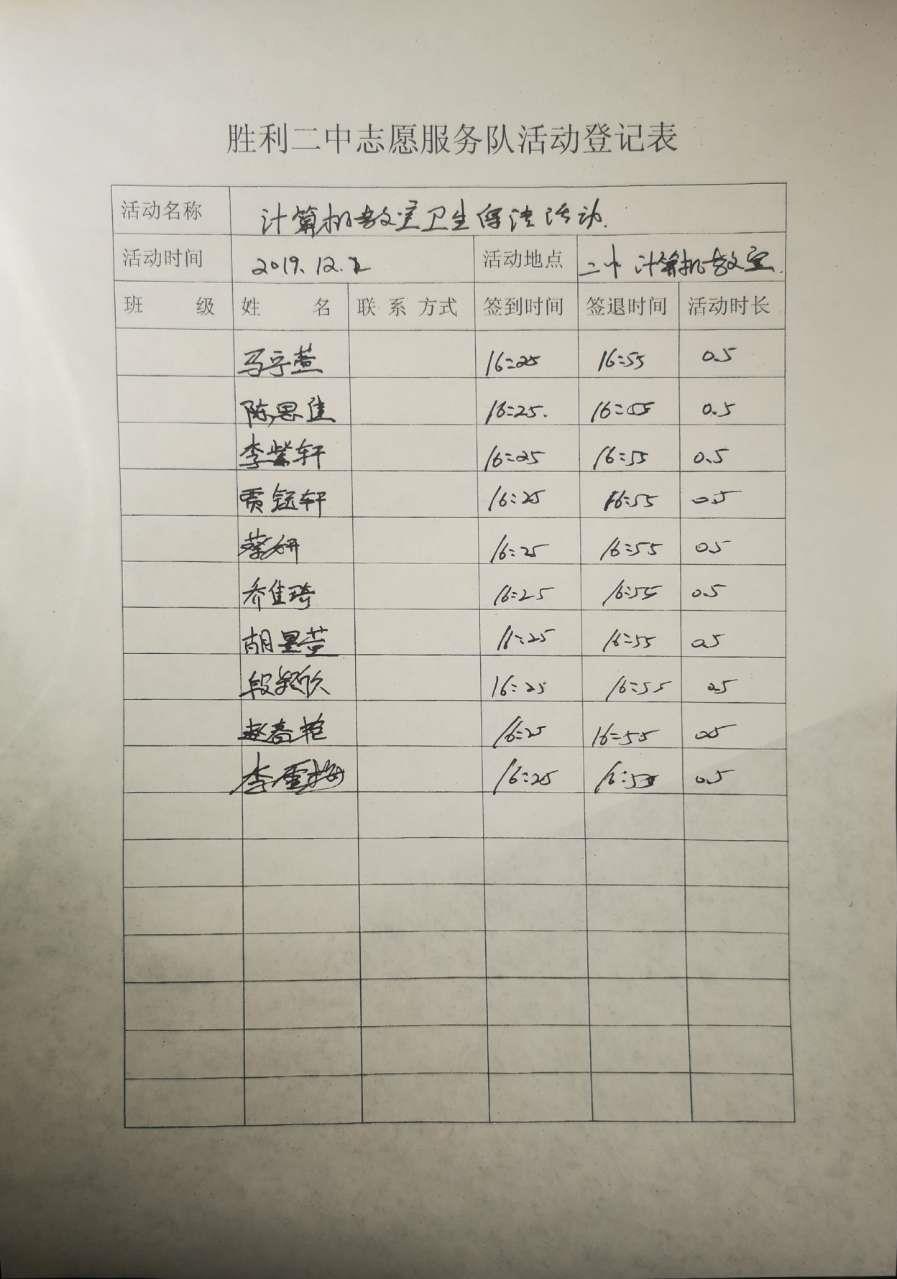 胜利二中志愿服务队活动登记表
活动名称 计算机教室卫生保洁活动.
活动时间 2019.12.2 活动地点 二中计算机教室.
班 级 姓 名 联 系 方式 签到时间 签退时间 活动时长
马宇萱 16:25 16:55 0.5
陈思佳 16:25. 16:55 0.5
李紫轩 16:25 16:55 0.5
贾钰轩 16:25 16:55 0.5
蔡妍 16:25 16:55 0.5
乔佳琦 16:25 16:55 0.5
胡景萱 16:25 16:55 0.5
段 欣 16:25 16:55 0.5
赵 16:25 16:55 0.5
李雪梅 16:25 16:55 0.5